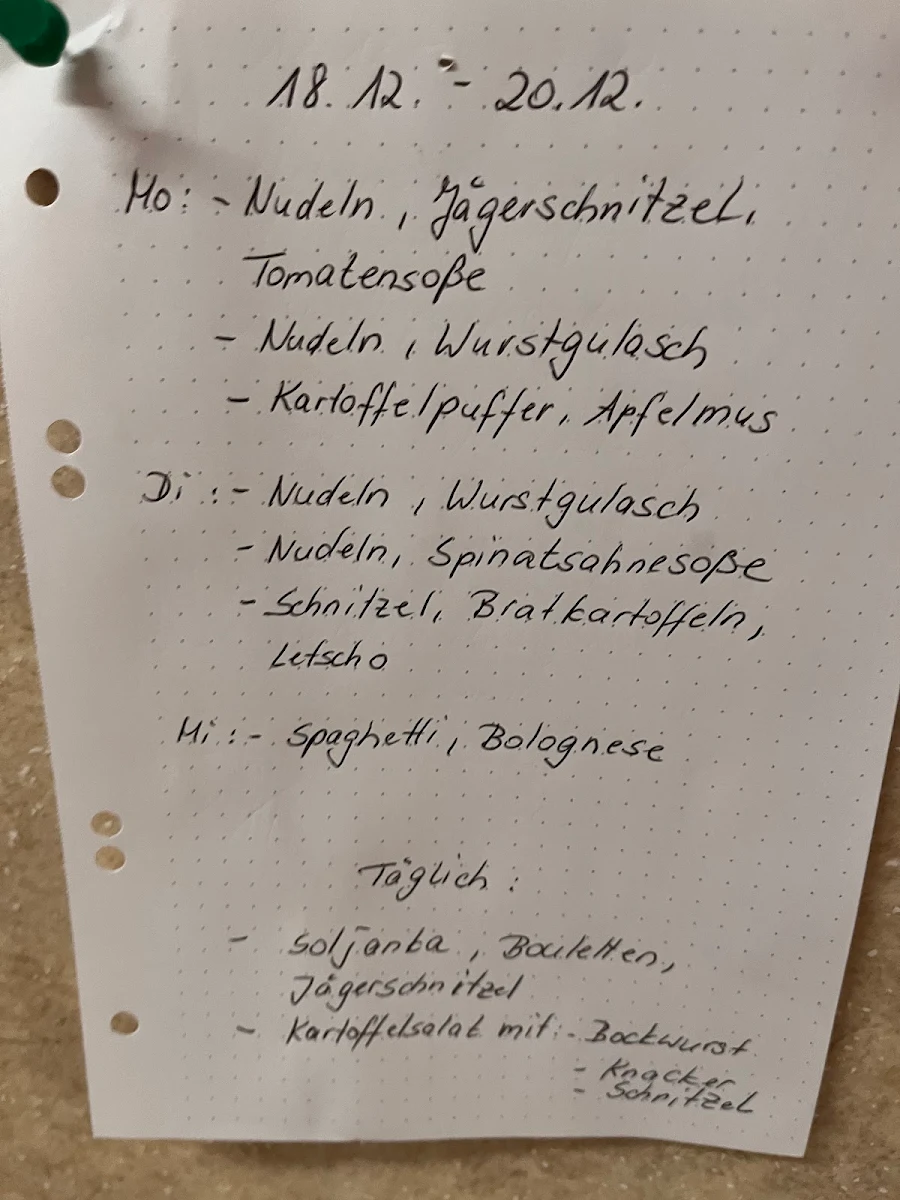 18.12. - 20.12.
Mo: - Nudeln, Jägerschnitzel,
Tomatensoße
- Nudeln, Wurstgulasch
- Kartoffelpuffer, Apfelmus
Di: - Nudeln, Wurstgulasch
- Nudeln, Spinatsahnesoße
- Schnitzel, Bratkartoffeln,
Letscho
Mi: - Spaghetti, Bolognese
Täglich:
- Soljanba, Bouletten,
Jägerschnitzel
- Kartoffelsalat mit: - Bockwurst
- Knacker
- Schnitzel